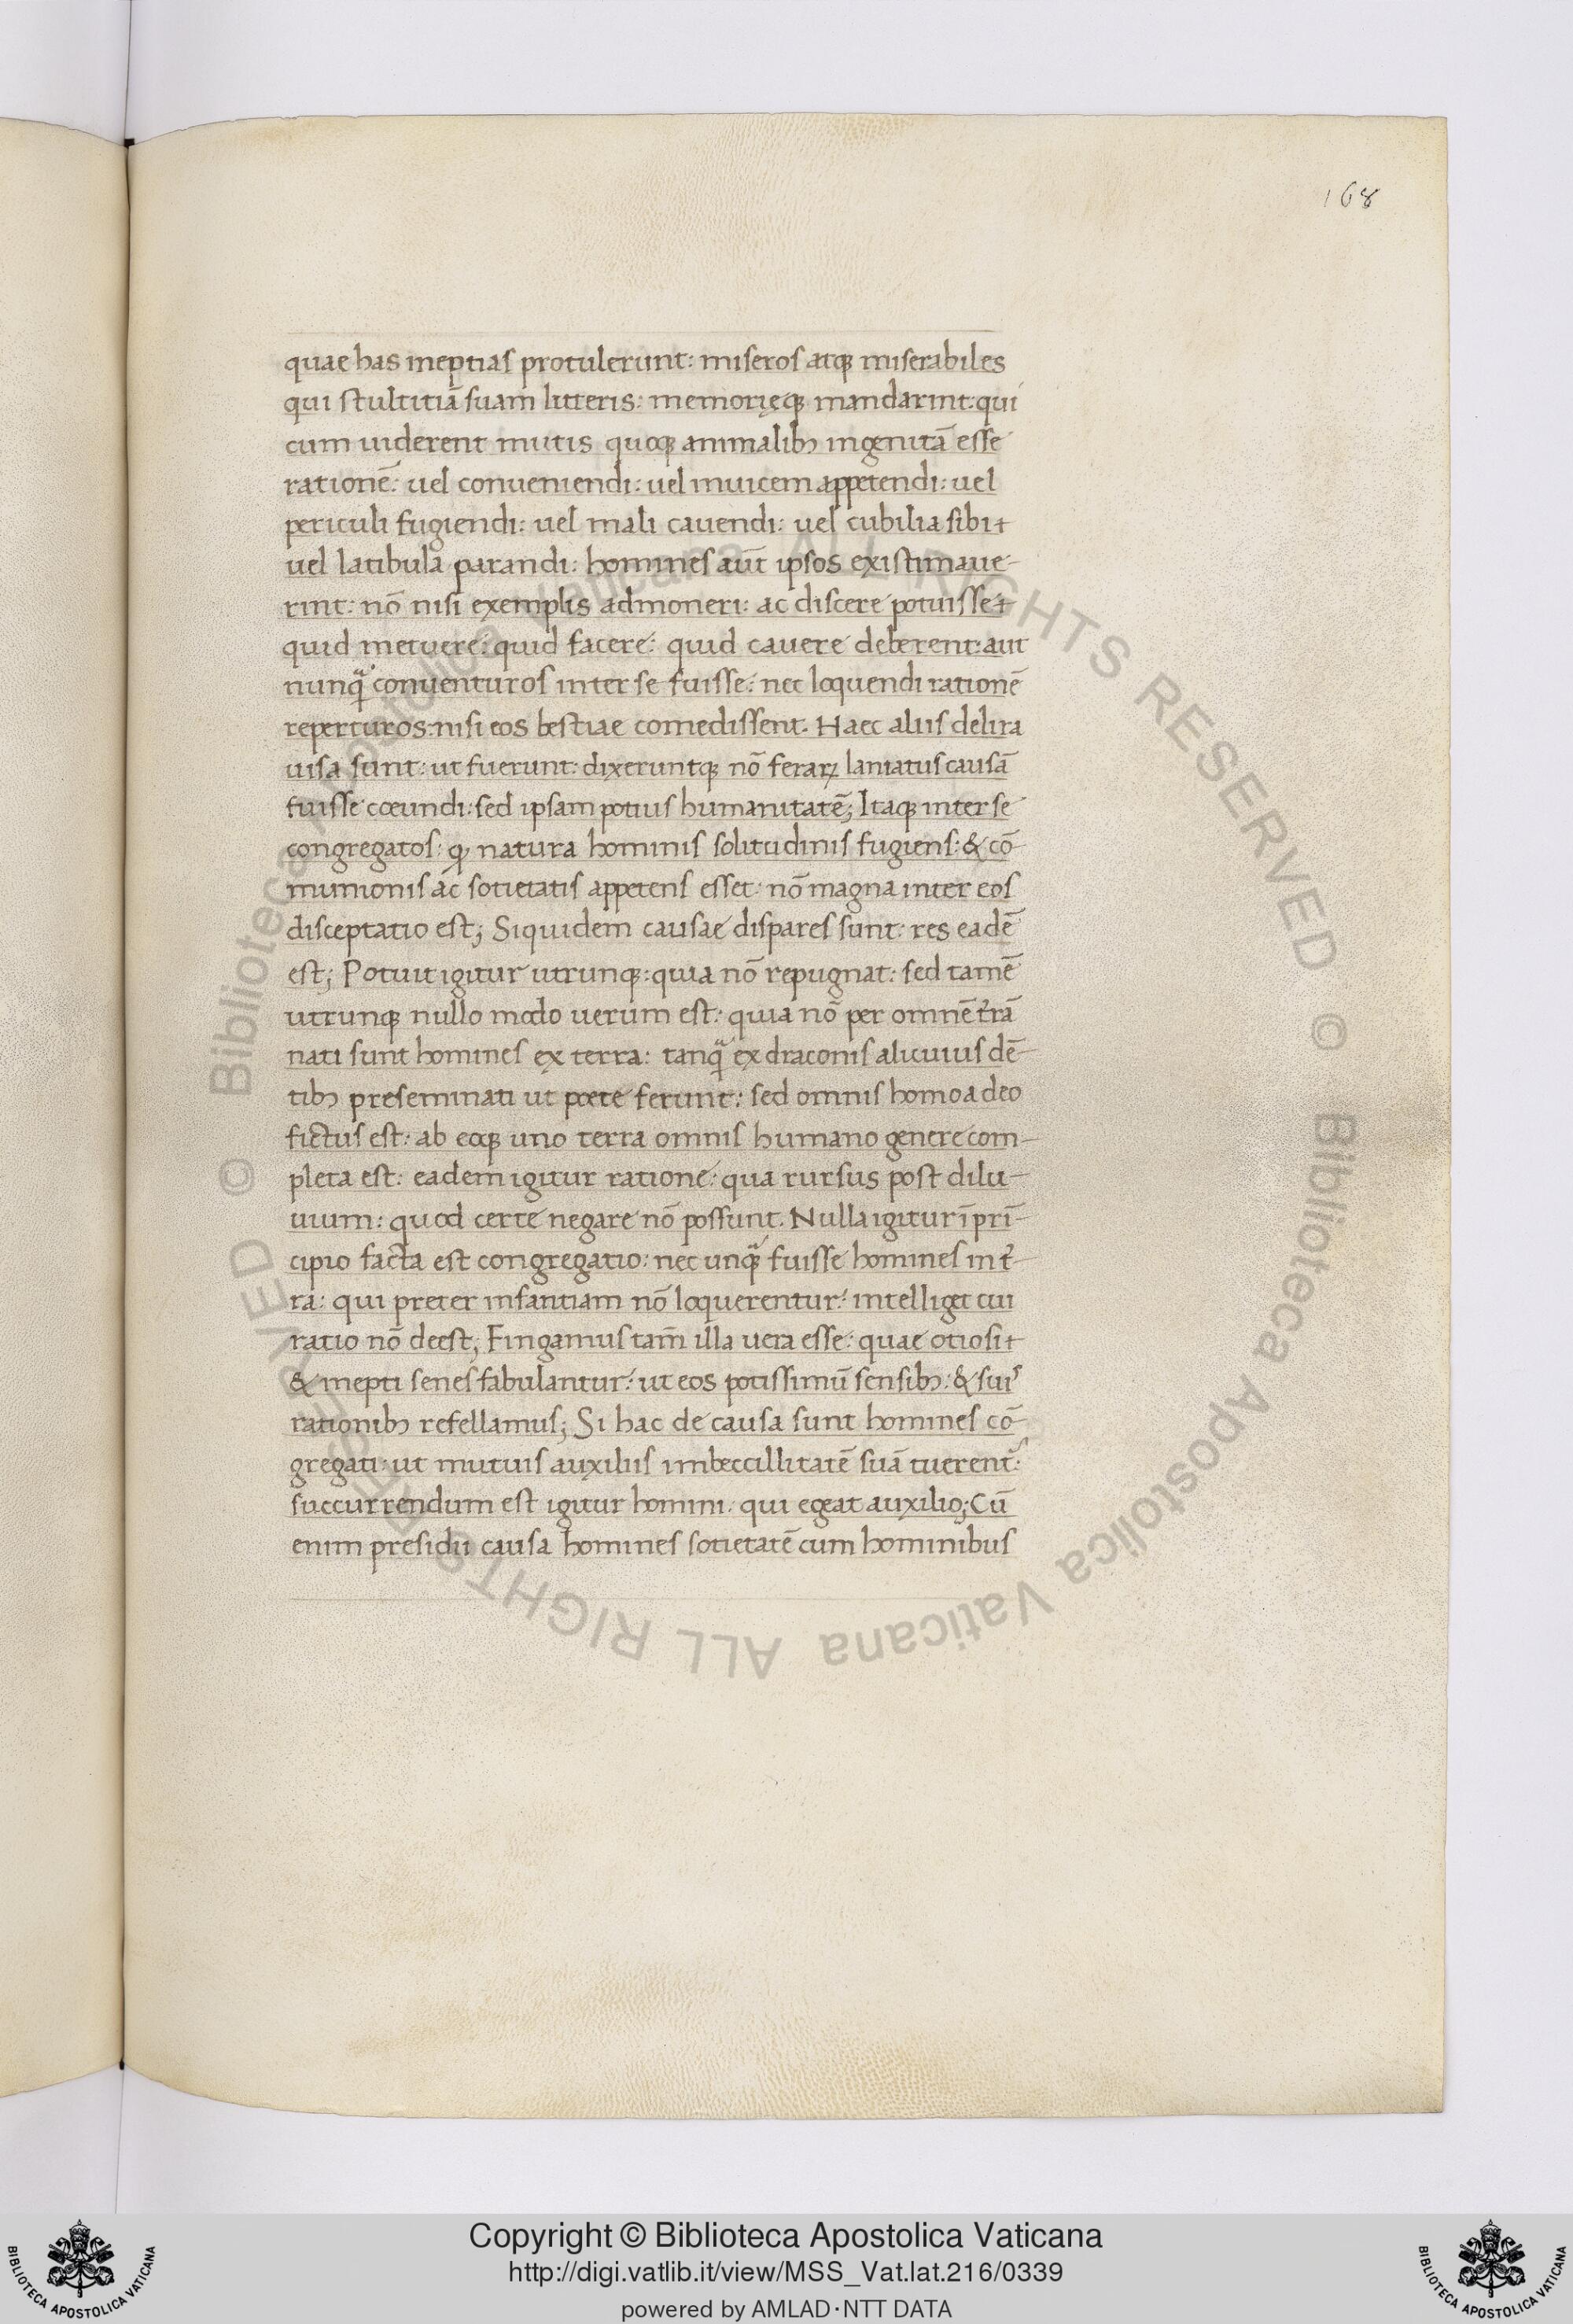 168
quae has ineptias protulerunt: miseros atqꝫ miserabiles
qui stultitiā suam litteris: memorięqꝫ mandarint: qui
cum uiderent mutis quoqꝫ animalibꝫ ingenitā esse
rationē: uel conueniendi: uel inuicem appetendi: uel
periculi fugiendi: uel mali cauendi: uel cubilia sibi
uel latibula parandi: homines aūt ipsos existimaue-
rint: nō nisi exemplis admoneri: ac discere potuisse
quid metuere: quid facere: quid cauere deberent: aut
nunqᷓ conuenturos inter se fuisse: nec loquendi rationē
reperturos: nisi eos bestiae comedissent. Haec aliis delira
uisa sunt: ut fuerunt: dixeruntqꝫ nō feraꝝ laniatus causā
fuisse coeundi: sed ipsam potius humanitatē; Itaqꝫ inter se
congregatos: ꝙ natura hominis solitudinis fugiens: & cō-
munionis ac sotietatis appetens esset: nō magna inter eos
disceptatio est; Siquidem causae dispares sunt: res eadē
est; Potuit igitur utrunqꝫ: quia nō repugnat: sed tamē
utrunqꝫ nullo modo uerum est: quia nō per omnē t̄rā
nati sunt homines ex terra: tanqᷓ ex draconis alicuius dē-
tibꝫ preseminati ut poete ferunt: sed omnis homo a deo
fictus est: ab eoqꝫ uno terra omnis humano genere com-
pleta est: eadem igitur ratione: qua rursus post dilu-
uium: quod certe negare nō possunt. Nulla igitur ī prī-
cipio facta est congregatio: nec unqᷓ fuisse homines in t̄-
ra: qui preter infantiam nō loquerentur: intelliget cui
ratio nō deest; Fingamus tam̄ illa uera esse: quae otiosi
& inepti senes fabulantur: ut eos potissimū sensibꝫ: & suis
rationibꝫ refellamus; Si hac de causa sunt homines cō-
gregati: ut mutuis auxiliis imbeccillitatē suā tuerent᷑:
succurrendum est igitur homini: qui egeat auxilio; Cū
enim presidii causa homines sotietatē cum hominibus
© Biblioteca Apostolica Vaticana ALL RIGHTS RESERVED © Biblioteca Apostolica Vaticana ALL RIGHTS RESERVED
BIBLIOTECA APOSTOLICA VATICANA
Copyright © Biblioteca Apostolica Vaticana
http://digi.vatlib.it/view/MSS_Vat.lat.216/0339
powered by AMLAD·NTT DATA
BIBLIOTECA APOSTOLICA VATICANA